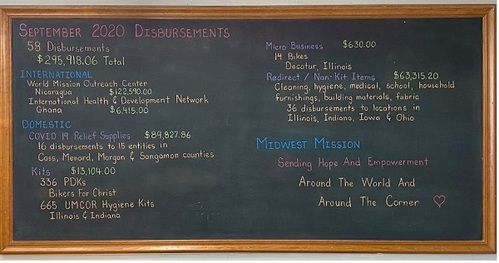 SEPTEMBER 2020 DISBURSEMENTS
58 Disbursements
$295,918.06 Total
INTERNATIONAL
World Mission Outreach Center
Nicaragua $122,590.00
International Health & Development Network
Ghana $6,415.00
DOMESTIC
COVID 19 Relief Supplies $89,827.86
16 disbursements to 15 entities in
Cass, Menard, Morgan & Sangamon counties
Kits $13,104.00
336 PDKs
Bikers For Christ
665 UMCOR Hygiene Kits
Illinois & Indiana
Micro Business $630.00
14 Bikes
Decatur, Illinois
Redirect / Non-Kit Items $63,315.20
Cleaning, hygiene, medical, school, household
furnishings, building materials, fabric
36 disbursements to locations in
Illinois, Indiana, Iowa & Ohio
MIDWEST MISSION
Sending Hope And Empowerment
Around The World And
Around The Corner ♡